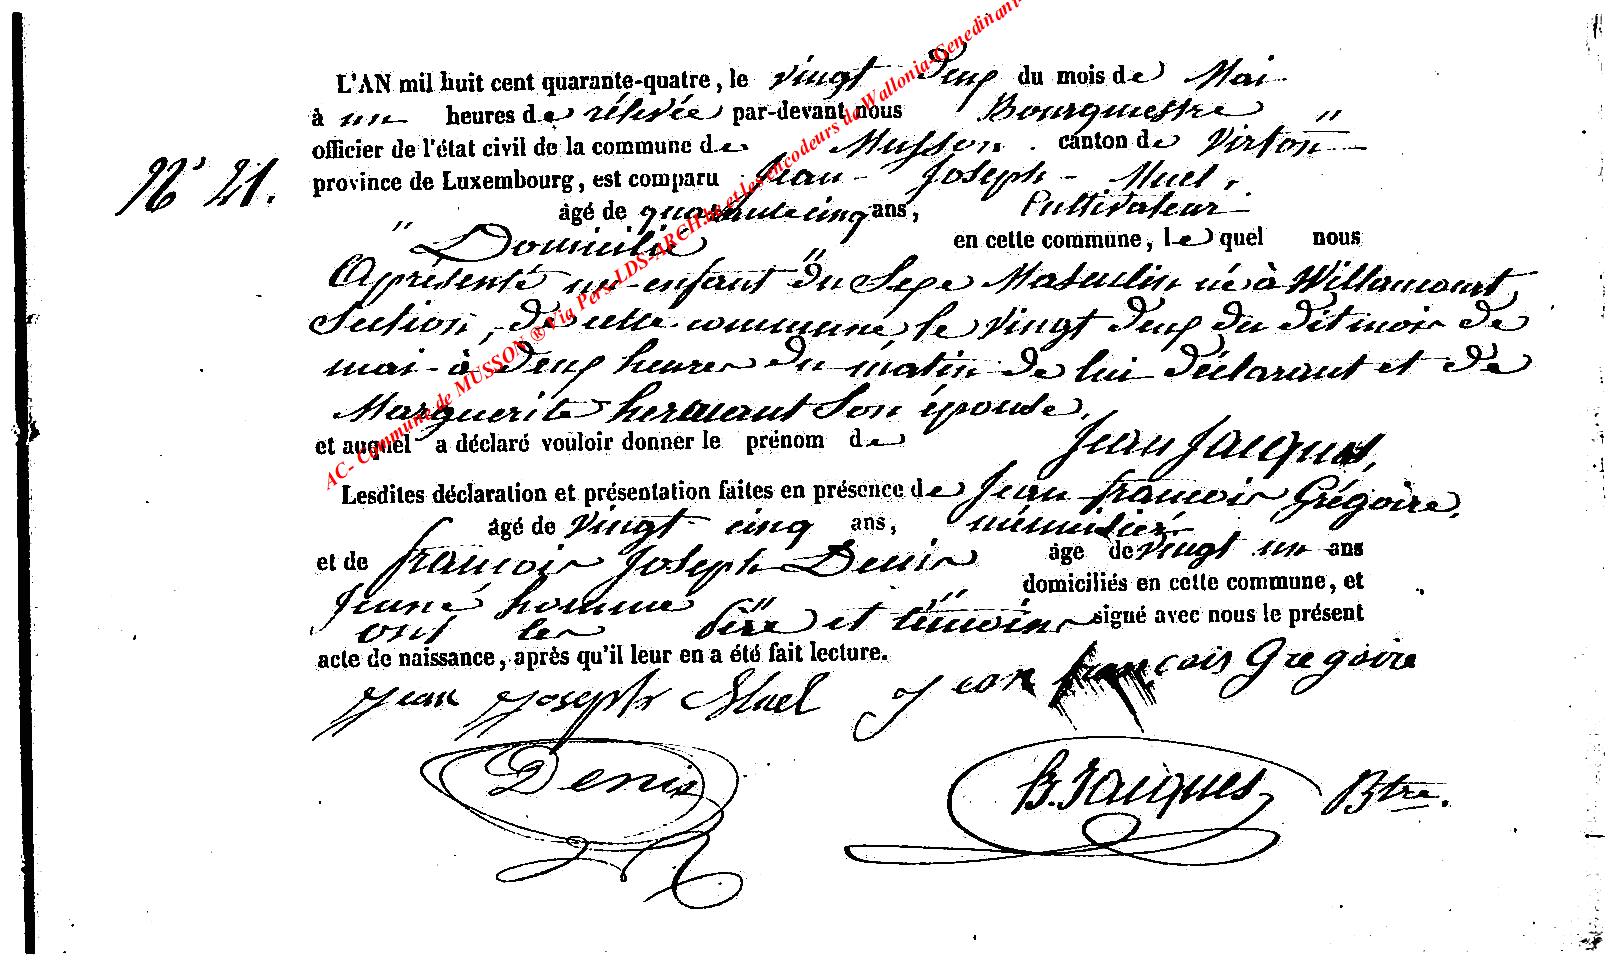 L'AN mil huit cent quarante-quatre, le vingt deux du mois de Mai
à un heures de rélevée par-devant nous Bourgmestre "
officier de l'état civil de la commune de Musson. canton de Virton
N° 21. province de Luxembourg, est comparu Jean Joseph Muel,
âgé de quarante cinq ans, Cultivateur
" Domicilié " en cette commune, lequel nous
a présenté un enfant du Sexe Masculin né à Willancourt
Section, de cette commune, le vingt deux du dit mois de
mai à deux heures du matin de lui déclarant et de
Marguerite hermant Son épouse,
et auquel a déclaré vouloir donner le prénom de Jean Jacques,
Lesdites déclaration et présentation faites en présence de Jean françois Grégoire,
âgé de vingt cinq ans, ménuisiér
et de françois Joseph Denis âgé de vingt un ans
Jeuné homme " " domiciliés en cette commune, et
ont les Père et témoins signé avec nous le présent
acte de naissance, après qu'il leur en a été fait lecture.
Jean Joseph Muel Jean françois Gregoire
Denis B. Jacques Btre.
AC- Commune de MUSSON ® Via Pers-LDS-ARCH.be et les encodeurs de Wallonia-Genedinant